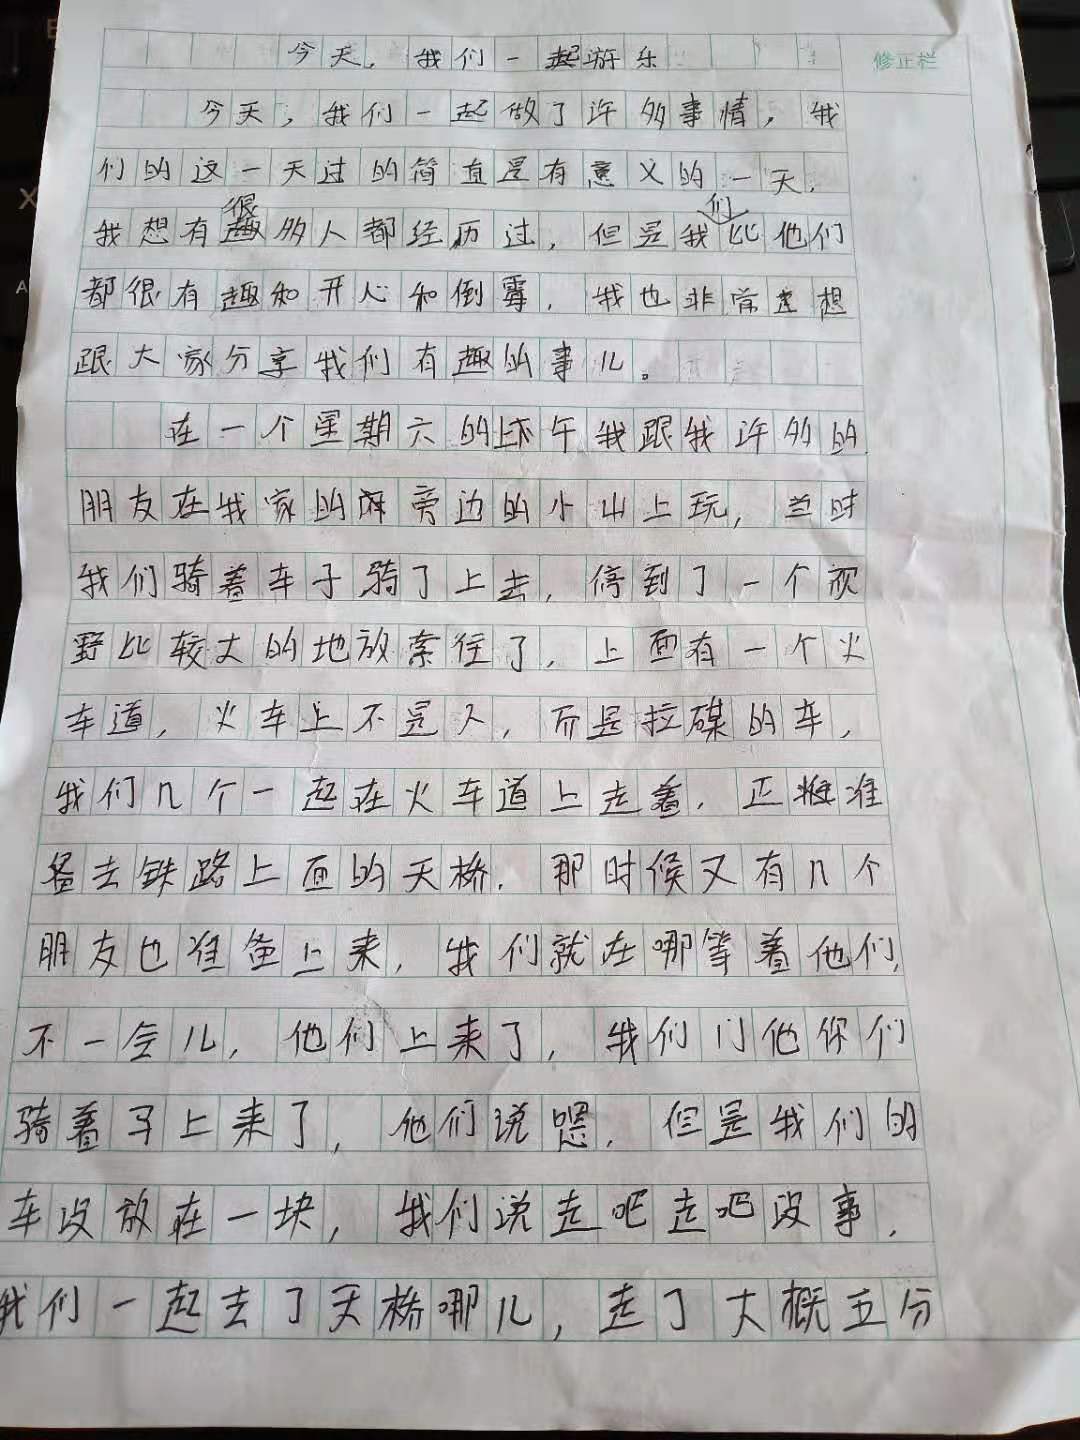 修正栏
今天，我们一起游乐
今天，我们一起做了许多事情，我
们的这一天过的简直是有意义的一天，
很 们
我想有趣多人都经历过，但是我比他们
都很有趣和开心和倒霉，我也非常想
跟大家分享我们有趣的事儿。
在一个星期六的下午我跟我许多的
朋友在我家的旁边的小山上玩，当时
我们骑着车子骑了上去，停到了一个视
野比较大的地放套住了，上面有一个火
车道，火车上不是人，而是拉碟的车，
我们几个一起在火车道上走着，正准
备去铁路上面的天桥，那时候又有几个
朋友也准备上来，我们就在哪等着他们，
不一会儿，他们上来了，我们门他你们
骑着子上来了，他们说嗯，但是我们的
车没放在一块，我们说走吧走吧没事，
我们一起去了天桥哪儿，走了大概五分